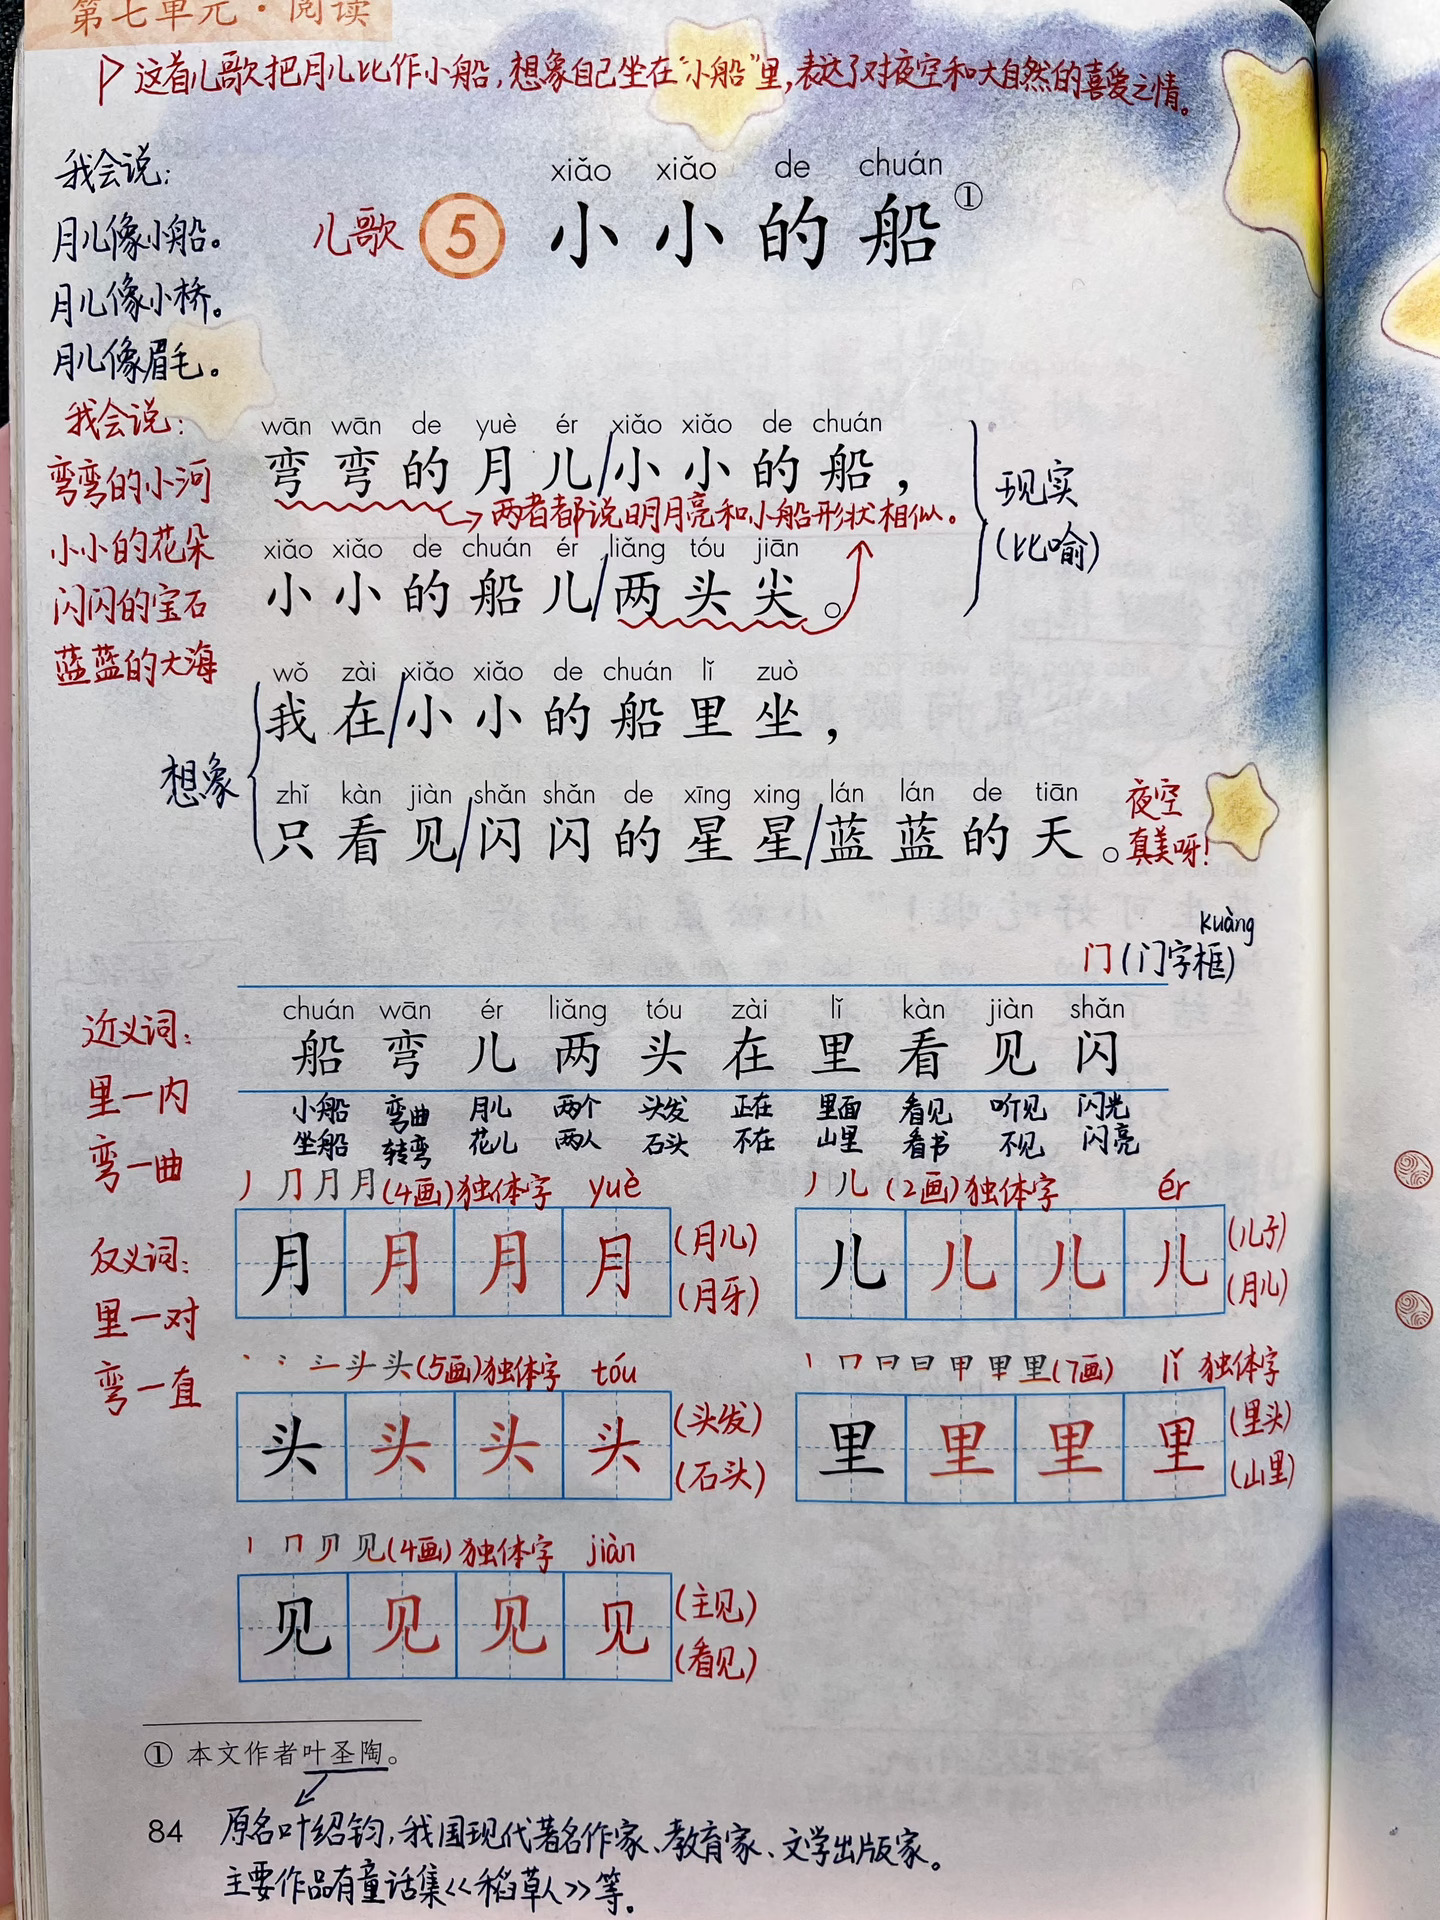 第七单元·阅读
这首儿歌把月儿比作小船,想象自己坐在“小船”里,表达了对夜空和大自然的喜爱之情。
xiǎo xiǎo de chuán
儿歌 5 小小的船①
我会说:
月儿像小船。
月儿像小桥。
月儿像眉毛。
我会说:
弯弯的小河
小小的花朵
闪闪的宝石
蓝蓝的大海
wān wān de yuè ér xiǎo xiǎo de chuán
弯弯的月儿/小小的船,
两者都说明月亮和小船形状相似。
xiǎo xiǎo de chuán ér liǎng tóu jiān
小小的船儿/两头尖。
现实
(比喻)
wǒ zài xiǎo xiǎo de chuán lǐ zuò
我在/小小的船里坐,
想象
zhǐ kàn jiàn shǎn shǎn de xīng xing lán lán de tiān
只看见/闪闪的星星/蓝蓝的天。
夜空
真美呀!
kuàng
门(门字框)
chuán wān ér liǎng tóu zài lǐ kàn jiàn shǎn
船 弯 儿 两 头 在 里 看 见 闪
小船 弯曲 月儿 两个 头发 正在 里面 看见 听见 闪光
坐船 转弯 花儿 两人 石头 不在 山里 看书 不见 闪亮
近义词:
里一内
弯一曲
反义词:
里一对
弯一直
丿 ⺆ 月 月(4画)独体字 yuè
月 月 月 月
(月儿)
(月牙)
丿 儿 (2画)独体字 ér
儿 儿 儿 儿
(儿子)
(月儿)
头 头(5画)独体字 tóu
头 头 头 头
(头发)
(石头)
丨 冂 日 日 甲 里 里(7画) lǐ 独体字
里 里 里 里
(里头)
(山里)
丨 冂 贝 见(4画)独体字 jiàn
见 见 见 见
(主见)
(看见)
① 本文作者叶圣陶。
84
原名叶绍钧,我国现代著名作家、教育家、文学出版家。
主要作品有童话集<<稻草人>>等.